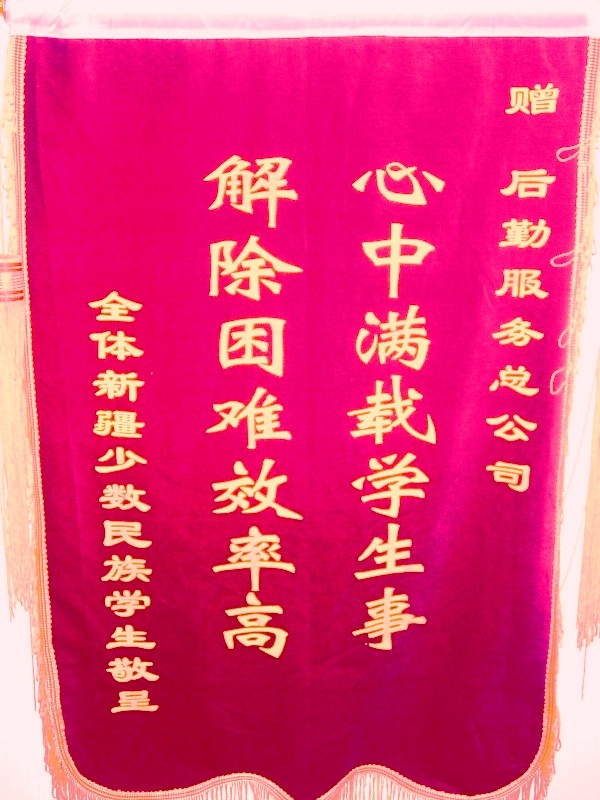 赠 后勤服务总公司
心中满载学生事
解除困难效率高
全体新疆少数民族学生敬呈